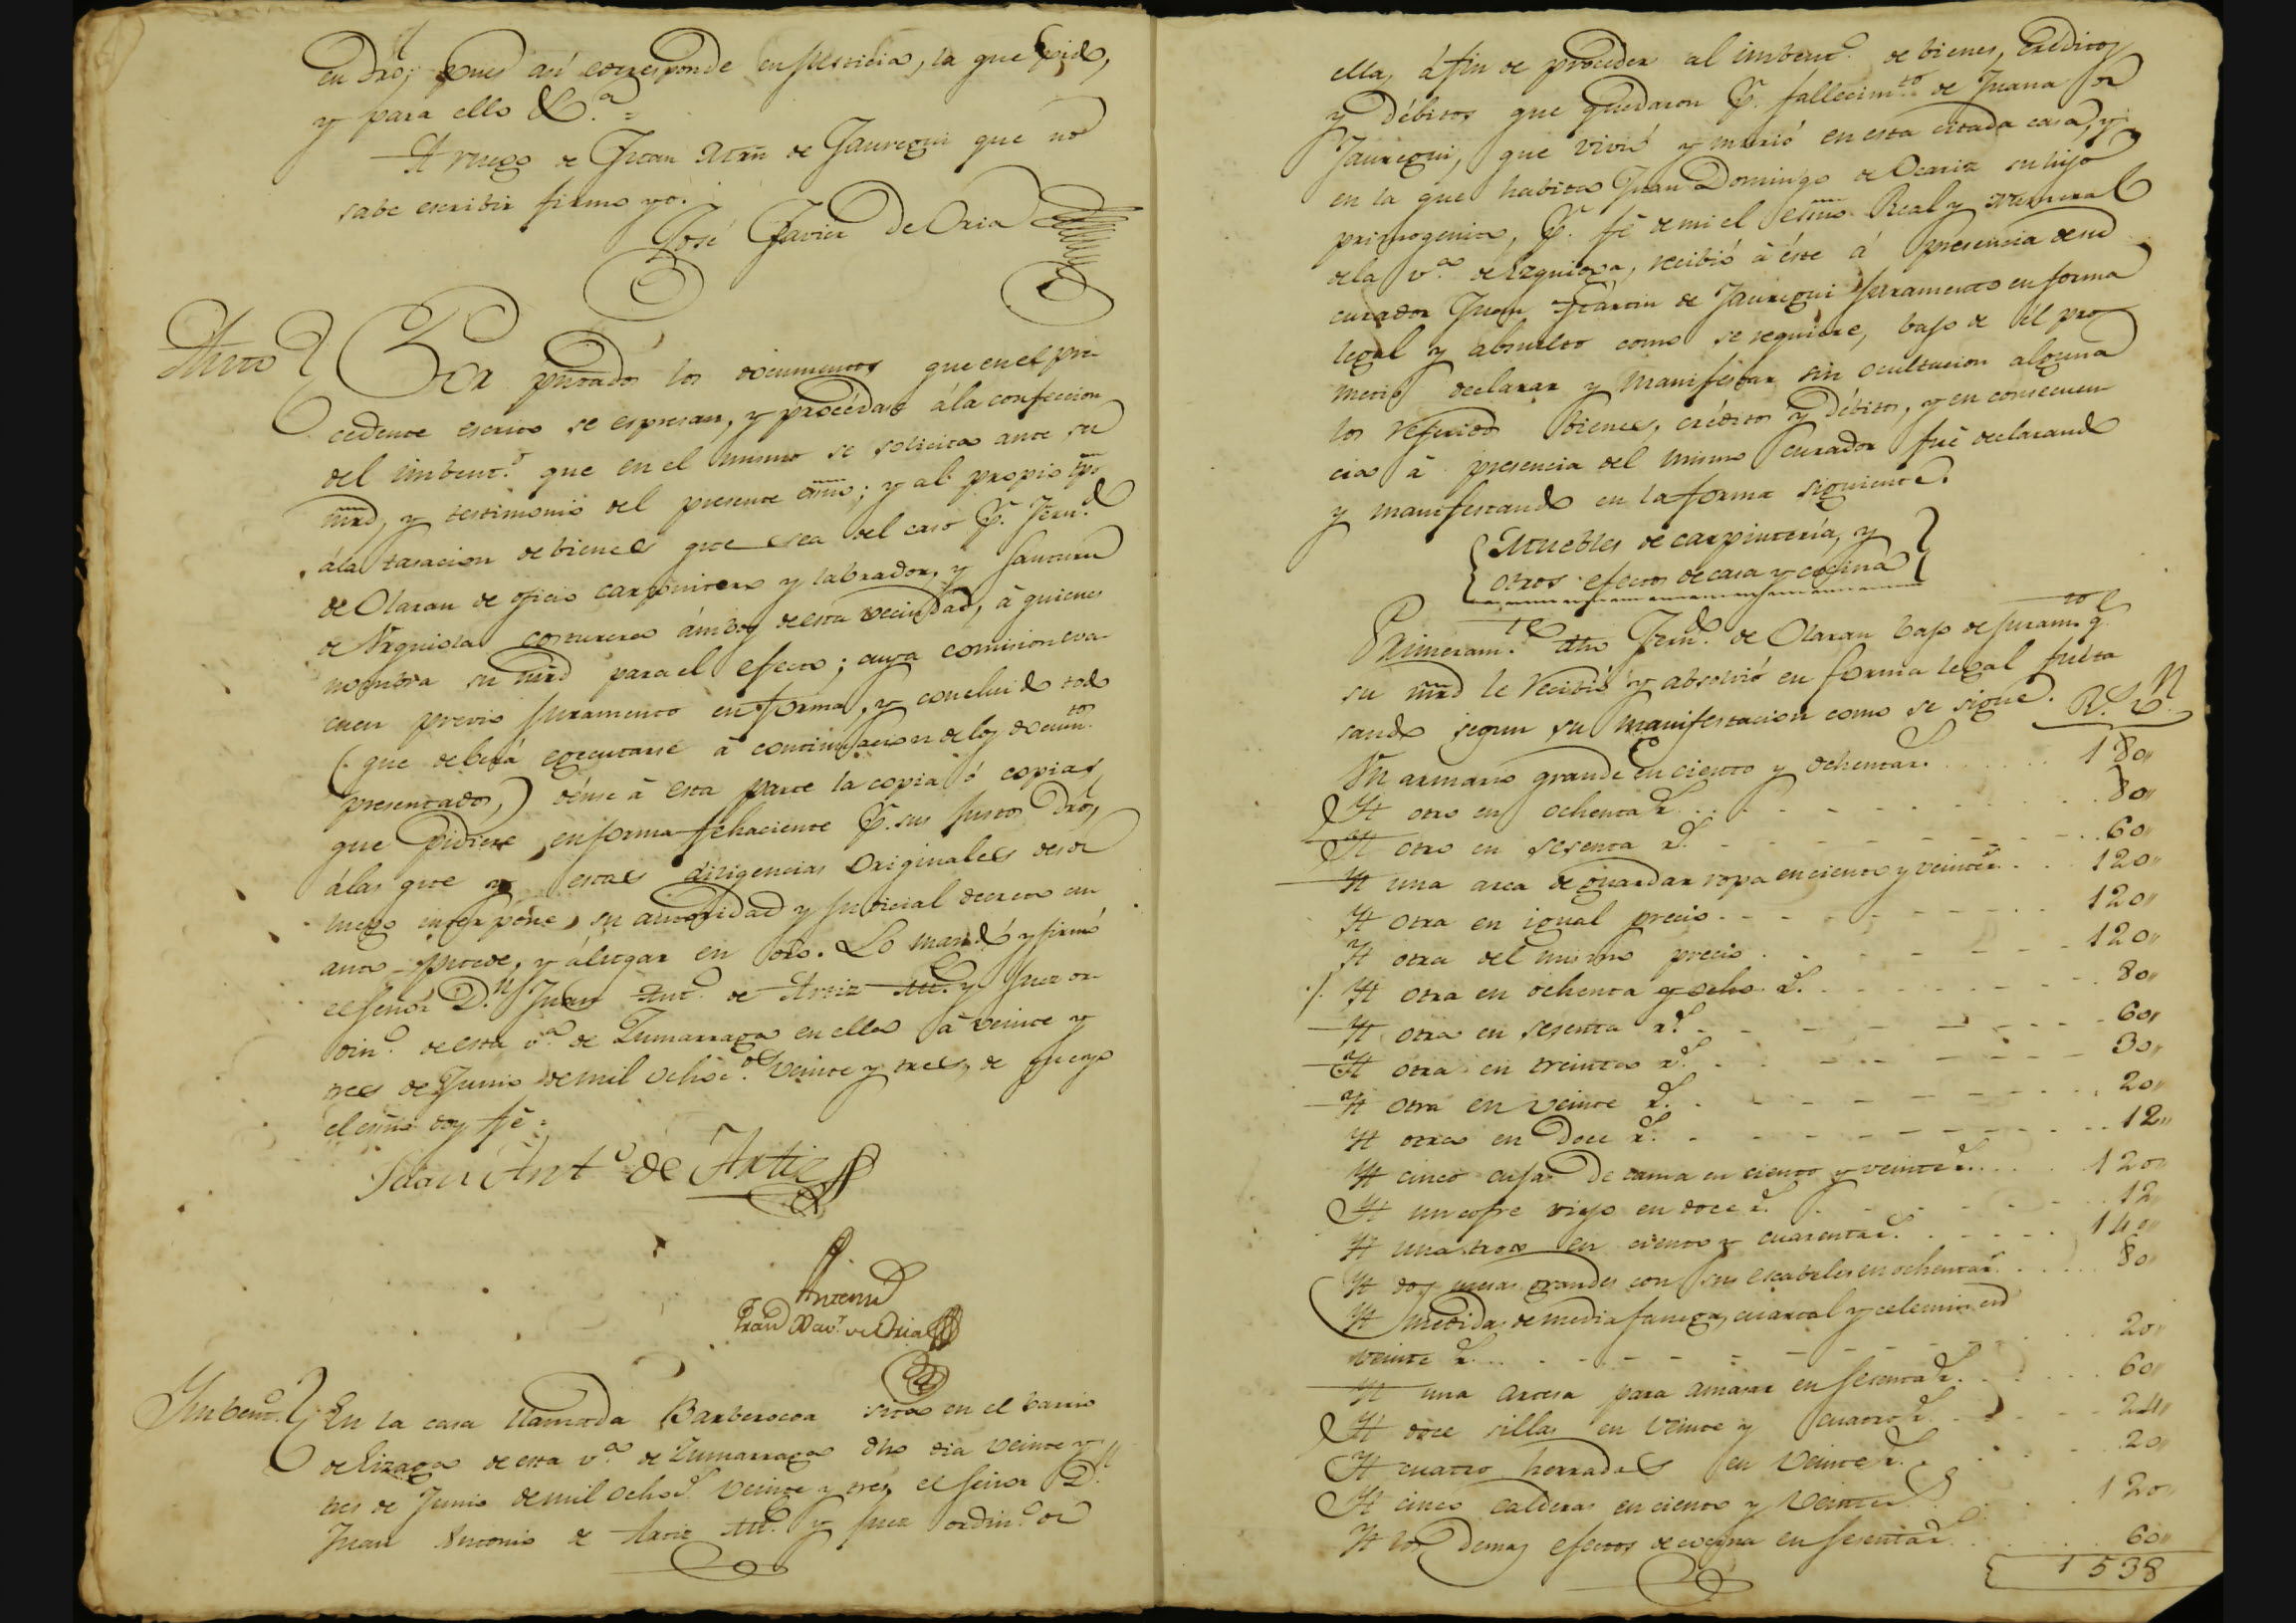 en dro; pues así corresponde en Justicia, la que pido,
y para ello &.a =
A ruego de Juan Mrn de Jauregui que no
sabe escribir firmo yo.
José Javier De Oria
Auto
Por presentados los documentos que en el pre-
cedente escrito se espresan, y procédase á la confeccion
del imbent.o que en el mismo se solicita ante su
mrd, y testimonio del presente esno; y al propio tpo
á la tasacion de bienes que sea del caso p.r Fern.do
de Olaran de oficio carpintero y labrador, y
de Urquiola costurera ámbos de esta vecindad, á quienes
nombra su mrd para el efecto; cuya comision eva-
cuen previo Juramento en forma, y concluido todo
(que deberá egecutarse á continuacion de los docum.tos
presentados,) dénse á esta parte la copia ó copias,
que pidiere en forma fehaciente p.r sus justos dros,
á las que y estas diligencias originales desde
luego interpone su autoridad y Judicial decreto cuan-
to puede, y á lugar en dro. Lo mandó y firmó
el Señor D.n Juan Ant.o de Artiz Alc.e y Juez or-
din.o de esta v.a de Zumarraga en ella á veinte y
tres de Junio de mil ochoc.tos veinte y tres, de que yo
el esno doy fé =
Juan Ant.o de Artiz
Antemi
Fran.co Xav.r de Oria
Imbent.o
En la casa llamada Barberocoa sita en el barrio
de Eizaga de esta v.a de Zumarraga dho dia veinte y
tres de Junio de mil ochoc.s veinte y tres, el Señor D.n
Juan Antonio de Artiz Alc.e y Juez ordin.o de
ella, á fin de proceder al imbent.o de bienes, créditos
y débitos que quedaron p.r fallecim.to de Juana de
Jauregui, que vivió y murió en esta citada casa, y
en la que habita Juan Domingo de Ocariz su hijo
primogenito, p.r fé de mi el esno Real y numeral
de la v.a de Ezquioga, recibió á éste á presencia de su
curador Juan Martin de Jauregui Juramento en forma
legal y absuelto como se requiere, bajo de él pro-
metió declarar y manifestar sin ocultacion alguna
los referidos bienes, créditos y débitos, y en consecuen-
cia á presencia del mismo curador fué declarando
y manifestando en la forma siguiente.
Muebles de carpintería, y
otros efectos de casa y cocina
Primeram.te dho Fern.do de Olaran bajo de Juram.to q.e
su mrd le recibió y absolvió en forma legal fué ta-
sando segun su manifestacion como se sigue. R.s V.n
Un armario grande en ciento y ochenta r.s 180,,
Yt otro en ochenta r.s 80,,
Yt otro en sesenta r.s 60,,
Yt una arca de guardar ropa en ciento y veinte r.s 120,,
Yt otra en igual precio 120,,
Yt otra del mismo precio 120,,
Yt otra en ochenta y ocho r.s 80,,
Yt otra en sesenta r.s 60,,
Yt otra en treinta r.s 30,,
Yt otra en veinte r.s 20,,
Yt otra en doce r.s 12,,
Yt cinco cujas de cama en ciento y veinte r.s 120,,
Yt un cofre viejo en doce r.s 12,,
Yt una en ciento y cuarenta r.s 140,,
Yt dos mesas grandes con sus escabeles en ochenta r.s 80,,
Yt medidas de media fanega, cuartal y celemin en
veinte r.s 20,,
Yt una artesa para amasar en sesenta r.s 60,,
Yt doce sillas en veinte y cuatro r.s 24,,
Yt cuatro herradas en veinte r.s 20,,
Yt cinco calderas en ciento y veinte r.s 120,,
Yt los demas efectos de cocina en sesenta r.s 60,,
1538